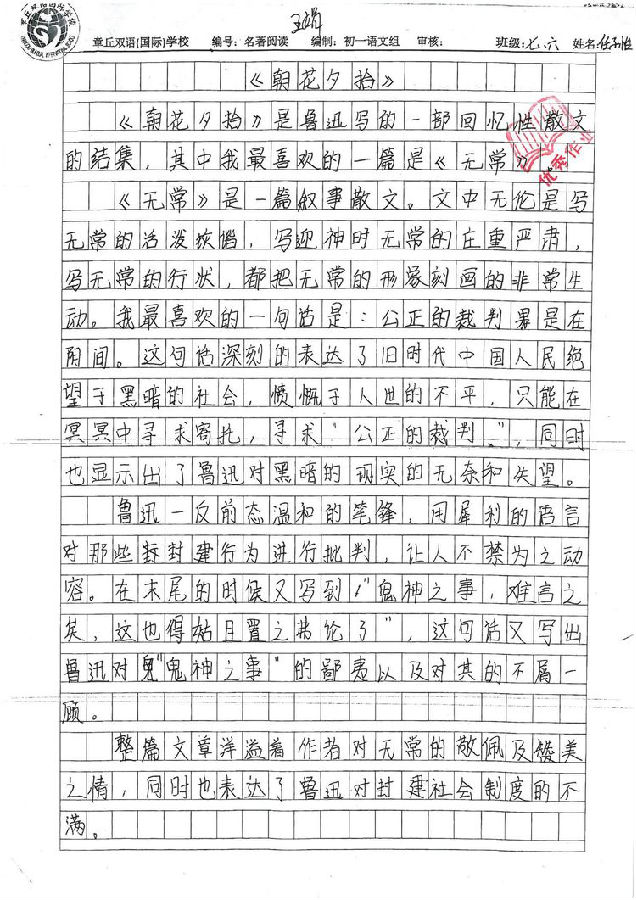 章丘双语国际学校
章丘双语(国际)学校 编号：名著阅读 编制：初一语文组 审核： 班级:七.六 姓名:
《朝花夕拾》
《朝花夕拾》是鲁迅写的一部回忆性散文
的结集，其中我最喜欢的一篇是《无常》
优秀作业
《无常》是一篇叙事散文。文中无伦是写
无常的活泼诙谐，写迎神时无常的庄重严肃，
写无常的行状，都把无常的形象刻画的非常生
动。我最喜欢的一句话是：公正的裁判果是在
阴间。这句话深刻的表达了旧时代中国人民绝
望于黑暗的社会，愤慨于人世的不平，只能在
冥冥中寻求寄托，寻求“公正的裁判。”，同时
也显示出了鲁迅对黑暗的现实的无奈和失望。
鲁迅一反前态温和的笔锋，用犀利的语言
对那些封封建行为进行批判，让人不禁为之动
容。在末尾的时侯又写到“鬼神之事，难言之
矣，这也得姑且置之弗伦了”，这句话又写出
鲁迅对鬼“鬼神之事”的鄙夷以及对其的不屑一
顾。
整篇文章洋溢着作者对无常的敬佩及赞美
之情，同时也表达了鲁迅对封建社会制度的不
满。